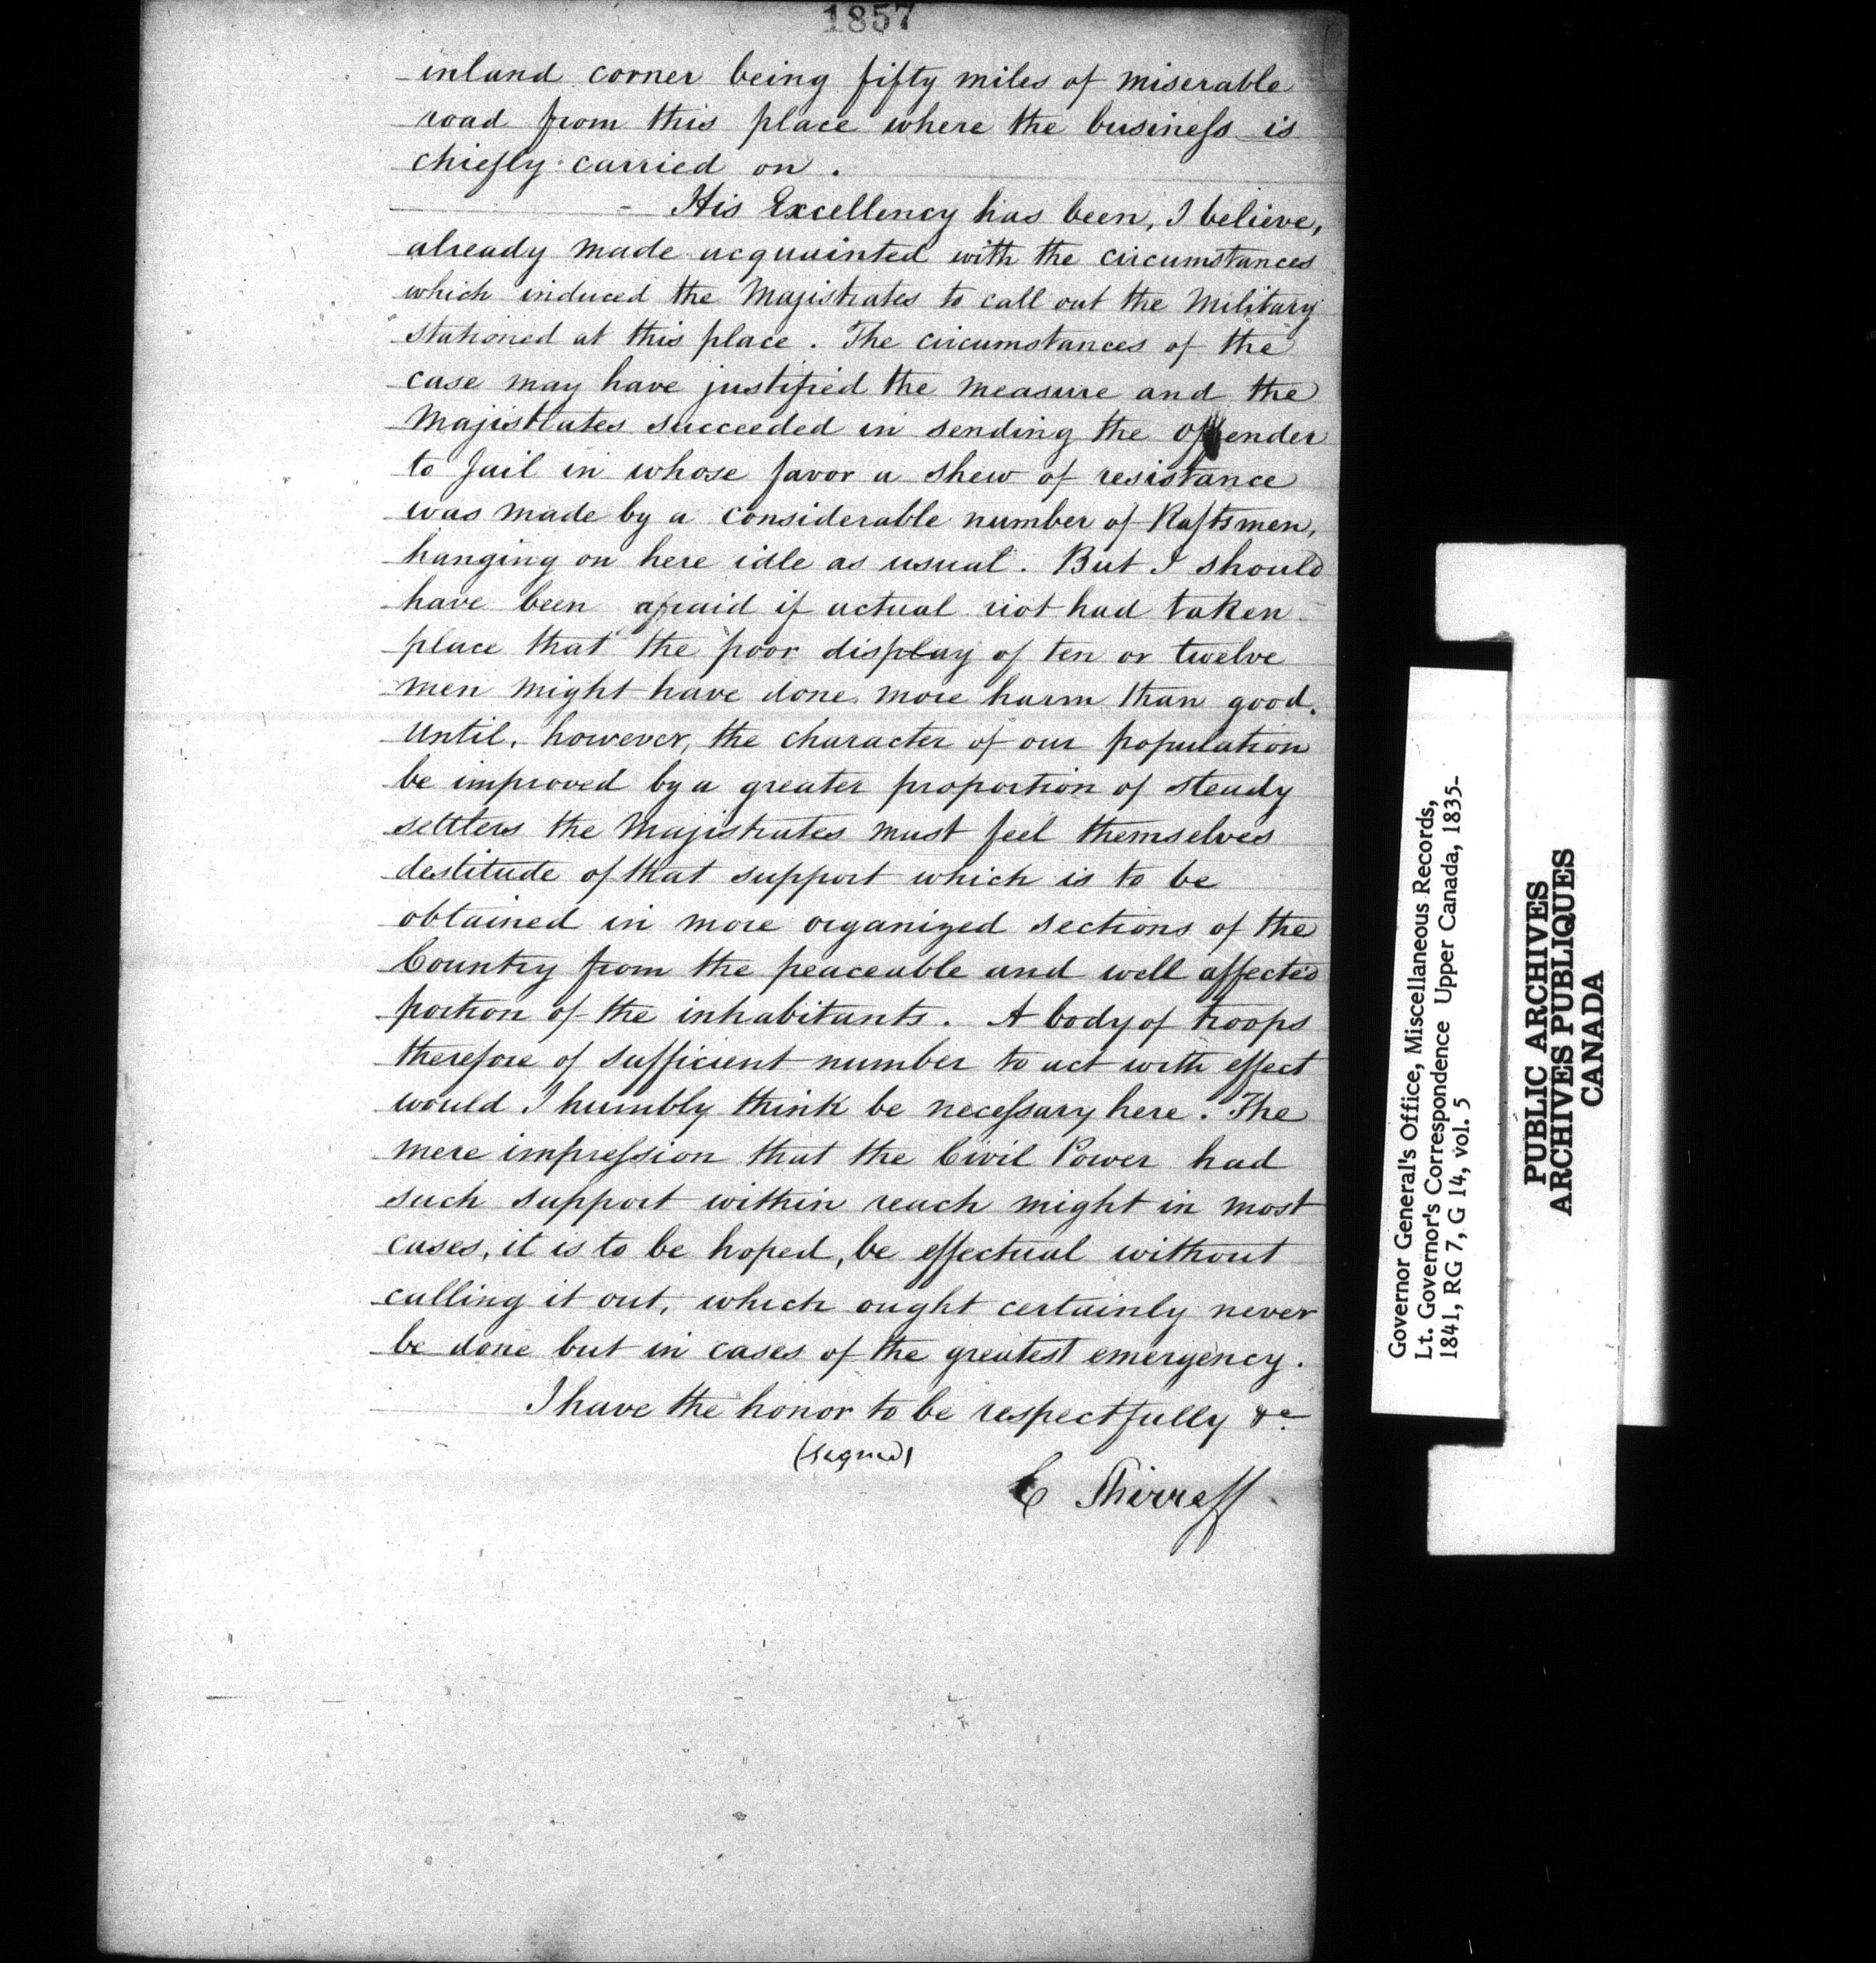 1857
inland corner being fifty miles of miserable
road from this place where the business is
chiefly carried on.
His Excellency has been, I believe,
already made acquainted with the circumstances
which induced the Majistrates to call out the Military
stationed at this place. The circumstances of the
case may have justified the measure and the
Majistrates succeeded in sending the offender
to Jail in whose favor a shew of resistance
was made by a considerable number of Raftsmen,
hanging on here idle as usual. But I should
have been afraid if actual riot had taken
place that the poor display of ten or twelve
men might have done more harm than good.
Until, however, the character of our population
be improved by a greater proportion of steady
settlers the Majistrates must feel themselves
destitude of that support which is to be
obtained in more organized sections of the
Country from the peaceable and well affected
portion of the inhabitants. A body of troops
therefore of sufficient number to act with effect
would I humbly think be necessary here. The
mere impression that the Civil Power had
such support within reach might in most
cases, it is to be hoped, be effectual without
calling it out, which ought certainly never
be done but in cases of the greatest emergency.
I have the honor to be respectfully &c
(signed)
C Shirreff
Governor General's Office, Miscellaneous Records,
Lt. Governor's Correspondence Upper Canada, 1835-
1841, RG 7, G 14, vol. 5
PUBLIC ARCHIVES
ARCHIVES PUBLIQUES
CANADA